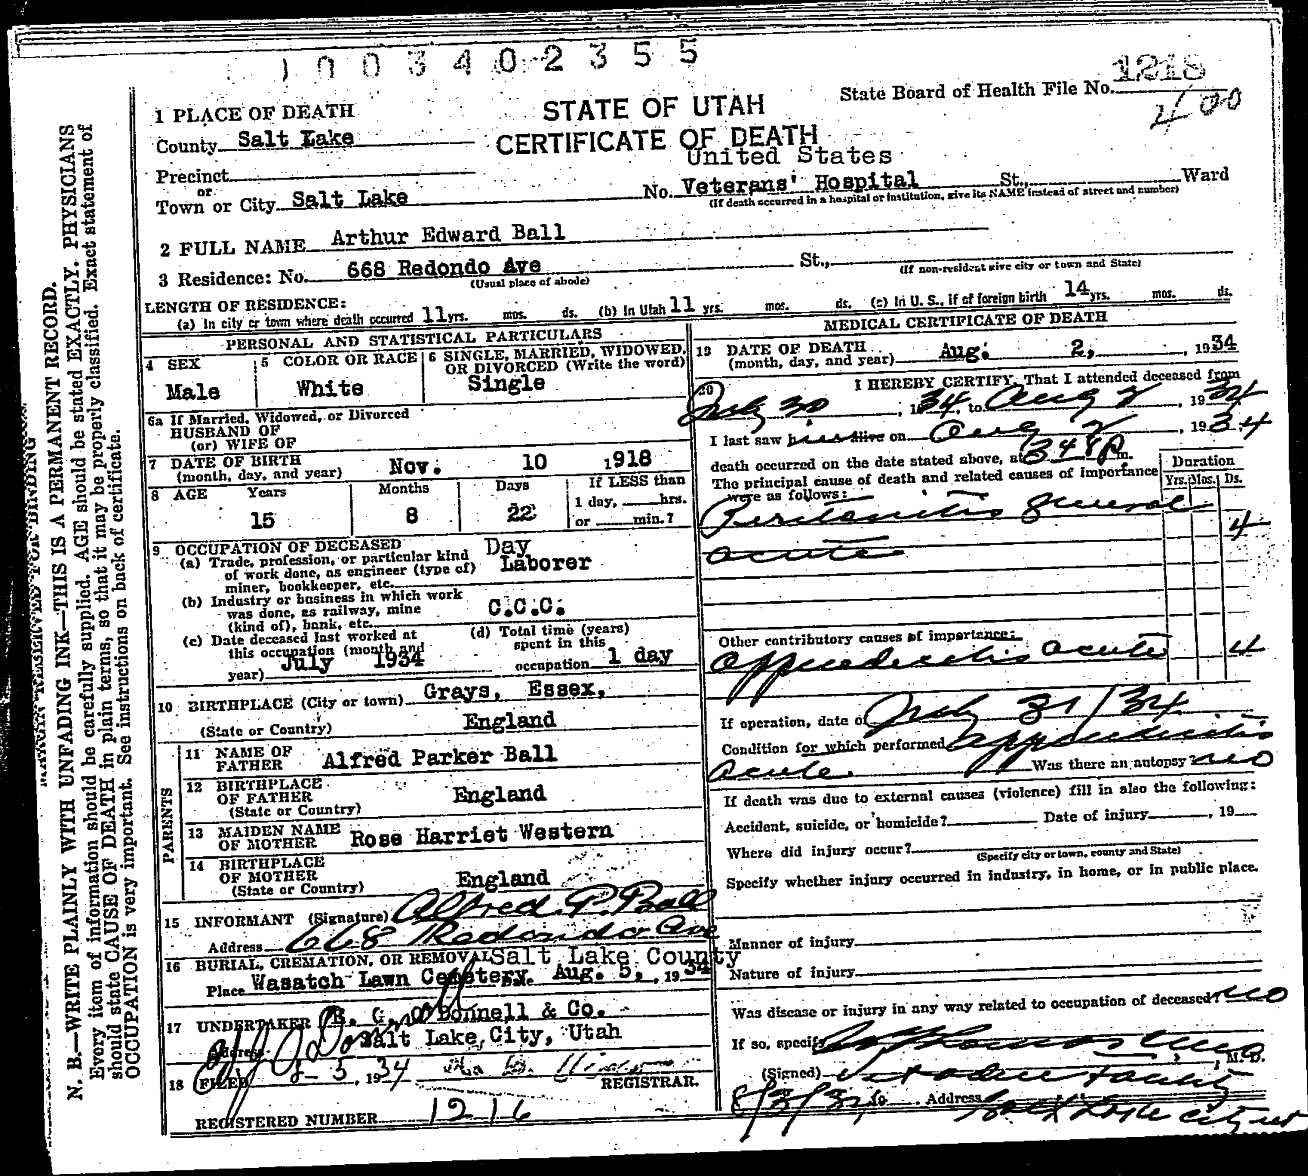 1003402355
1218
State Board of Health File No.
400
1 PLACE OF DEATH
STATE OF UTAH
CERTIFICATE OF DEATH
County Salt Lake
United States
Precinct
or
Town or City Salt Lake No. Veterans' Hospital St., Ward
(If death occurred in a hospital or institution, give its NAME instead of street and number)
2 FULL NAME Arthur Edward Ball
3 Residence: No. 668 Redondo Ave St.,
(Usual place of abode) (If non-resident give city or town and State)
LENGTH OF RESIDENCE:
(a) In city or town where death occurred 11 yrs. mos. ds. (b) In Utah 11 yrs. mos. ds. (c) In U. S., if of foreign birth 14 yrs. mos. ds.
PERSONAL AND STATISTICAL PARTICULARS
4 SEX
Male
5 COLOR OR RACE
White
6 SINGLE, MARRIED, WIDOWED, OR DIVORCED (Write the word)
Single
6a If Married, Widowed, or Divorced
HUSBAND OF
(or) WIFE OF
7 DATE OF BIRTH
(month, day, and year) Nov. 10 1918
8 AGE Years Months Days If LESS than
1 day, hrs.
15 8 22 or min.?
9 OCCUPATION OF DECEASED
(a) Trade, profession, or particular kind
of work done, as engineer (type of)
miner, bookkeeper, etc. Day Laborer
(b) Industry or business in which work
was done, as railway, mine
(kind of), bank, etc. C.C.C.
(c) Date deceased last worked at
this occupation (month and
year) July 1934
(d) Total time (years)
spent in this
occupation 1 day
10 BIRTHPLACE (City or town) Grays, Essex,
(State or Country) England
PARENTS
11 NAME OF
FATHER Alfred Parker Ball
12 BIRTHPLACE
OF FATHER England
(State or Country)
13 MAIDEN NAME
OF MOTHER Rose Harriet Western
14 BIRTHPLACE
OF MOTHER England
(State or Country)
15 INFORMANT (Signature) Alfred P. Ball
Address 668 Redondo Ave
16 BURIAL, CREMATION, OR REMOVAL Salt Lake County
Place Wasatch Lawn Cemetery Date Aug. 5, 1934
17 UNDERTAKER E. G. O'Donnell & Co.
Address Salt Lake City, Utah
18 FILED 8-3, 1934
REGISTRAR.
REGISTERED NUMBER 1216
MEDICAL CERTIFICATE OF DEATH
19 DATE OF DEATH
(month, day, and year) Aug. 2, 1934
20 I HEREBY CERTIFY, That I attended deceased from
July 30, 1934, to Aug 2, 1934
I last saw him alive on Aug 2, 1934
death occurred on the date stated above, at 3 48 P m.
The principal cause of death and related causes of importance
were as follows:
Duration
Yrs. Mos. Ds.
Peritonitis general 4
acute
Other contributory causes of importance:
Appendicitis acute 4
If operation, date of July 31/34
Condition for which performed appendicitis
acute Was there an autopsy? no
If death was due to external causes (violence) fill in also the following:
Accident, suicide, or homicide? Date of injury , 19
Where did injury occur?
(Specify city or town, county and State)
Specify whether injury occurred in industry, in home, or in public place.
Manner of injury
Nature of injury
Was disease or injury in any way related to occupation of deceased? no
If so, specify
(Signed) , M. D.
8/3/34 Address Salt Lake City Ut
MARGIN RESERVED FOR BINDING
N. B.—WRITE PLAINLY WITH UNFADING INK—THIS IS A PERMANENT RECORD.
Every item of information should be carefully supplied. AGE should be stated EXACTLY. PHYSICIANS
should state CAUSE OF DEATH in plain terms, so that it may be properly classified. Exact statement of
OCCUPATION is very important. See instructions on back of certificate.